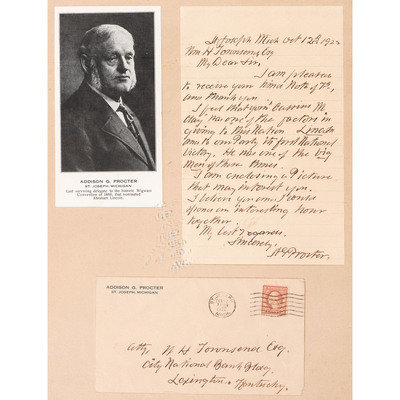 ADDISON G. PROCTER
ST. JOSEPH, MICHIGAN
Last surviving delegate to the historic Wigwam
Convention of 1860, that nominated
Abraham Lincoln.
St Joseph Mich Oct 12th 1922
Wm H Townsend, Esq
My Dear Sir,
I am pleased
to receive your kind Note of
and thank you.
I feel that your Cassius M
Clay was one of the factors in
giving to this Nation Lincoln
and to our Party its first National
Victory. He was one of the big
Men of those times.
I am enclosing a Picture
that may interest you.
I believe you and I could
an interesting hour
together.
My best regards
Sincerely,
A G Procter.
ADDISON G. PROCTER
ST. JOSEPH, MICHIGAN
Atty W H Townsend Esq.
City National Bank Bldg
Lexington Kentucky.